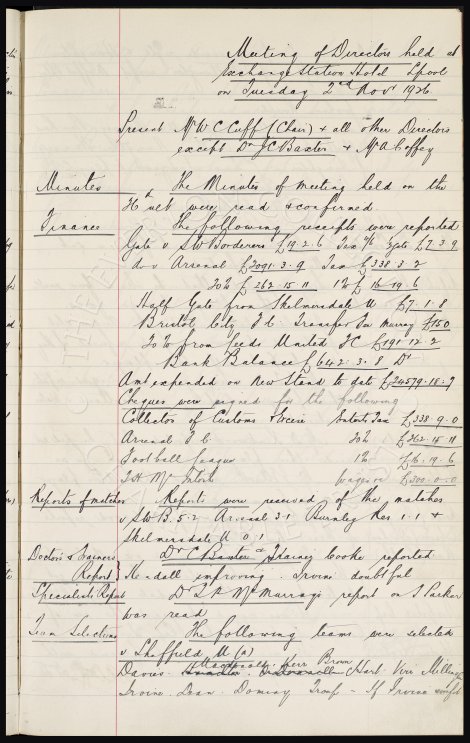 Meeting of Directors held at
Exchange Station Hotel L'pool
on Tuesday 2nd Novr 1926.
Present Mr W C Cuff (Chair) & all other Directors
except Dr J C Baxter & Mr A Coffey
Minutes The Minutes of meeting held on the
ult were read & confirmed.
Finance The following receipts were reported
Gate v S W Borderers £19.2.6 Tax £7.3.9
do v Arsenal £2091.3.9 Tax £338.3.2
20% £262.15.11 1% £16.19.6
Half Gate from Skelmersdale U £7.1.8
Bristol City F C. Transfer Fee Murray £150
20% from Leeds United F C £191.12.2
Bank Balance £642.3.8 Dr
Amt expended on New Stand to date £24579.18.9
Cheques were signed for the following
Collector of Customs & Excise Entertt Tax £338.9.0
Arsenal F C 20% £262.15.11
Football League 1% £16.19.6
wages £300.0.0
Reports of matches Reports were received of the matches
v S W B. 5-2 Arsenal 3-1 Burnley Res 1-1 &
Skelmersdale U 0.1
Doctor's & Trainers Dr C Baxter & Trainer Cooke reported
Report Kendall improving. Irvine doubtful
Specialists Report Dr McMurray's report on J Parker
was read
Team Selections The following teams were selected
v Sheffield U (a)
Macdonald. Kerr Brown
Davies. Hart. Virr Millington
Irvine. Dean. Dominy Troup - If Irvine unfit